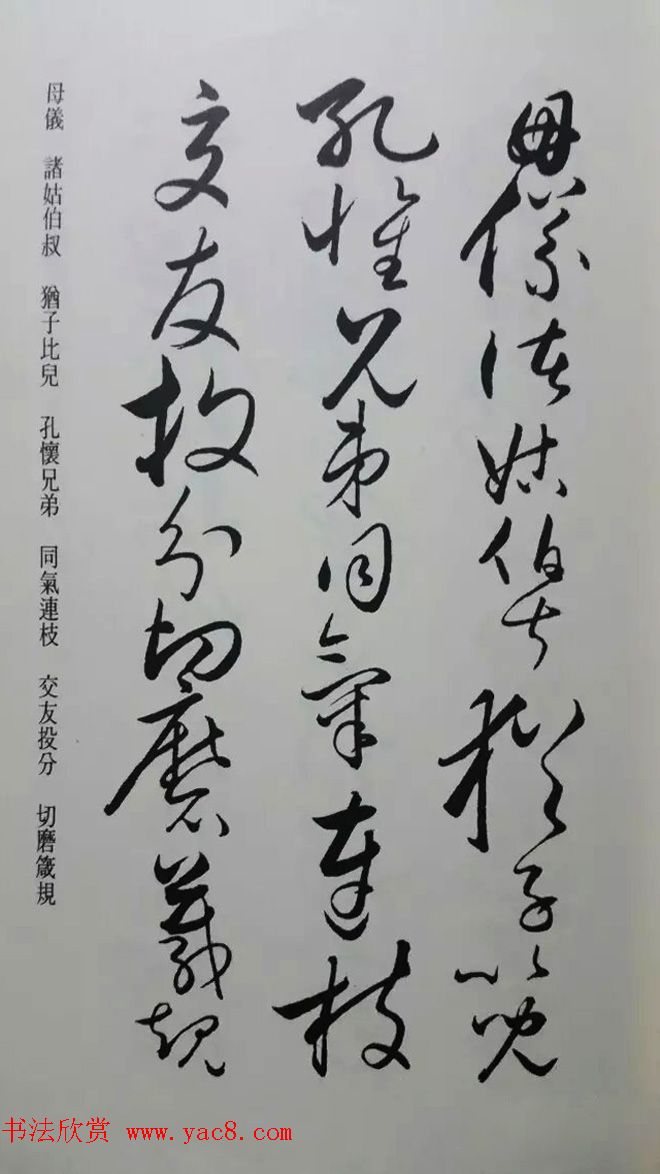 母儀諸姑伯叔猶子比兒
孔懷兄弟同氣連枝
交友投分切磨箴規
母儀 諸姑伯叔 猶子比兒 孔懷兄弟 同氣連枝 交友投分 切磨箴規
书法欣赏 www.yac8.com